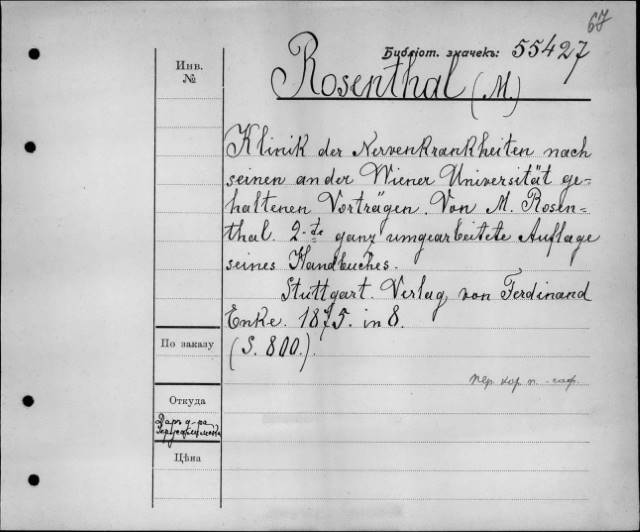 67
Библіот. значекъ: 55427
Инв.
№
Rosenthal (M)
Klinik der Nervenkrankheiten nach
seinen an der Wiener Universität ge=
haltenen Vorträgen. Von M. Rosen=
thal. 2-te ganz umgearbeitete Auflage
seines Handbuches.
Stuttgart. Verlag von Ferdinand
Enke. 1875. in 8.
По заказу
(S. 800.).
пер. кор. п.
Откуда
Даръ д-ра
Цѣна